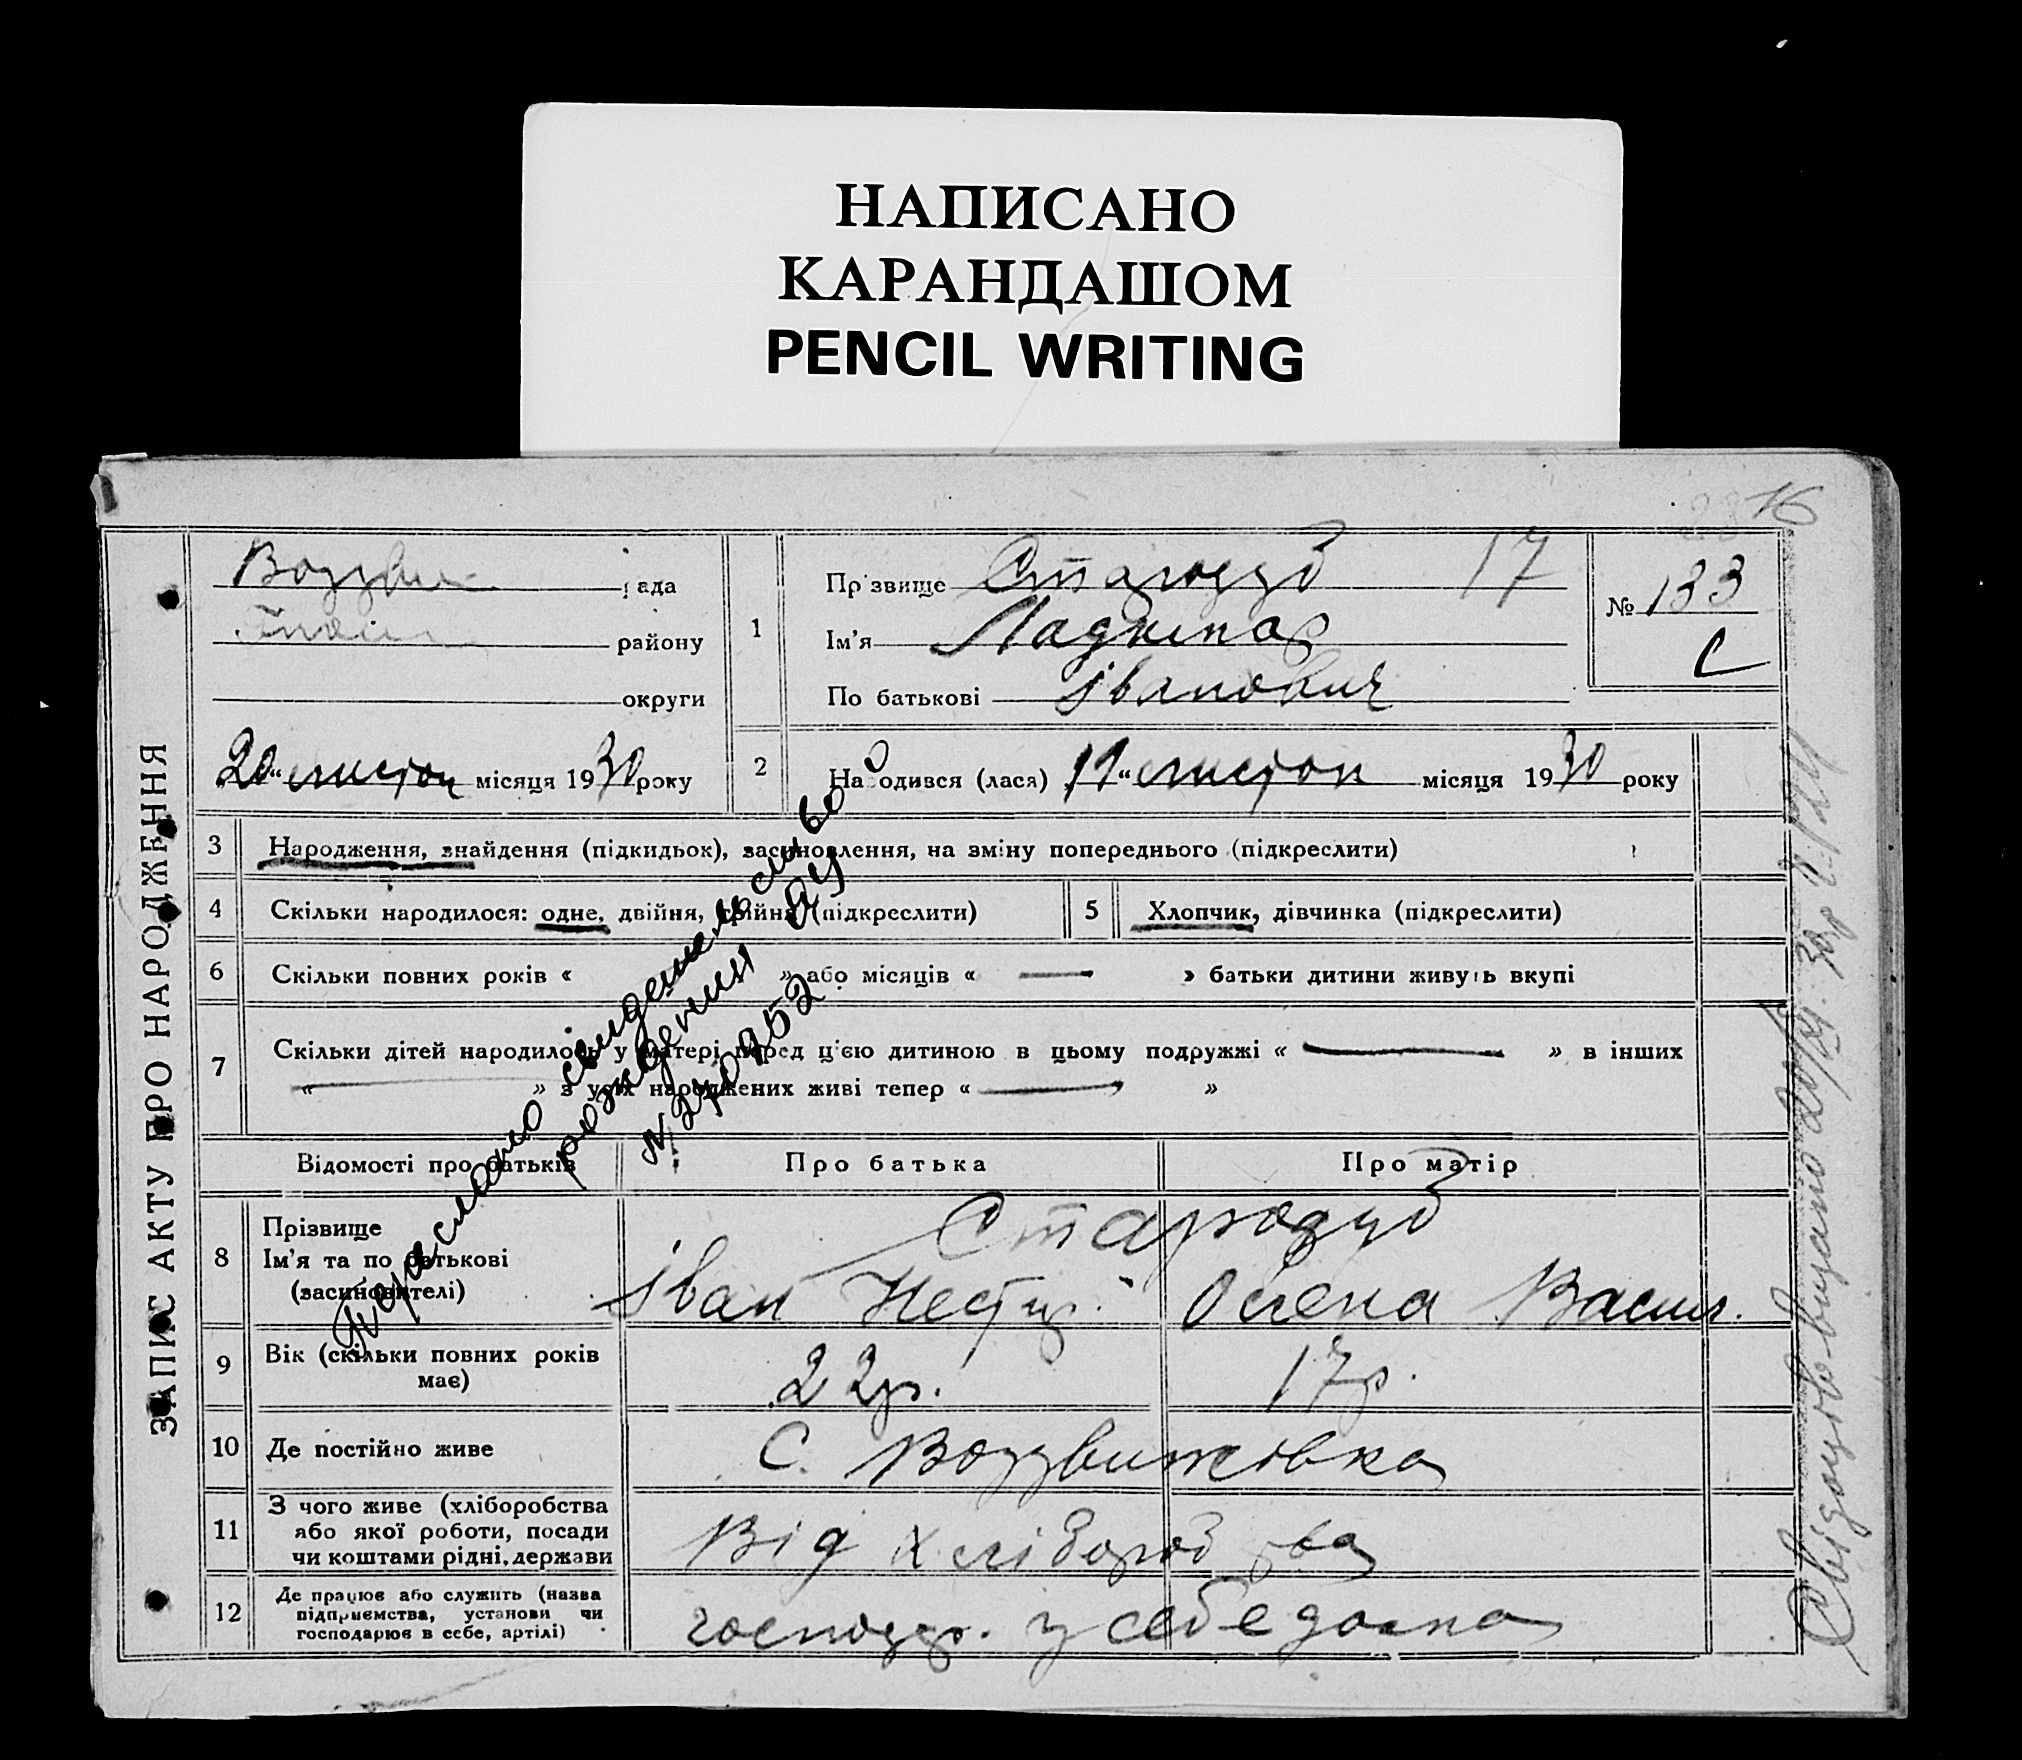 НАПИСАНО
КАРАНДАШОМ
PENCIL WRITING
16
ЗАПИС АКТУ ПРО НАРОДЖЕННЯ
рада
району
округи
20 “ листоп місяця 1930 року
1
Прізвище Стародуб 17
Ім'я
По батькові Іванович
№ 133
С
2
Народився (лася) 19 “ листоп місяця 1930 року
3 Народження, знайдення (підкидьок), засиновлення, на зміну попереднього (підкреслити)
4 Скільки народилося: одне, двійня, трійня (підкреслити)
5 Хлопчик, дівчинка (підкреслити)
6 Скільки повних років « » або місяців « — » батьки дитини живуть вкупі
7 Скільки дітей народилось у матері перед цією дитиною в цьому подружжі « — » в інших
« — » з усіх народжених живі тепер « — »
Відомості про батьків Про батька Про матір
8 Прізвище
Ім'я та по батькові
(засиновителі)
Стародуб
Іван Нестер. Олена Васил.
9 Вік (скільки повних років
має)
22 р. 17 р.
10 Де постійно живе С. Воздвижівка
11 З чого живе (хліборобства
або якої роботи, посади
чи коштами рідні, держави
Від хліборобства
12 Де працює або служить (назва
підприємства, установи чи
господарює в себе, артілі)
господар. у себе дома
свидетельство
рождении